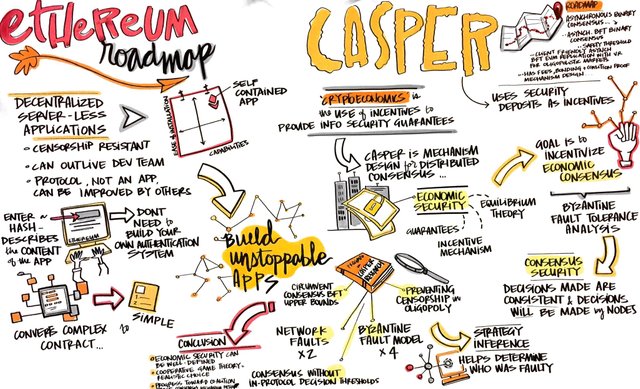 ETHEREUM
roadmap
DECENTRALIZED
SERVER-LESS
APPLICATIONS
• CENSORSHIP RESISTANT
• CAN OUTLIVE DEV TEAM
• PROTOCOL, NOT AN APP,
CAN BE IMPROVED BY OTHERS
SELF
CONTAINED
APP
EASE OF INSTALLATION
CAPABILITIES
ENTER a
HASH-
DESCRIBES
the CONTENT
of the APP
ETHEREUM
DON'T
NEED to
BUILD YOUR
OWN AUTHENTICATION
SYSTEM
CONVERTS COMPLEX
CONTRACT...
to
SIMPLE
Build
unstoppable
APPS
CONCLUSION
• ECONOMIC SECURITY CAN
BE WELL-DEFINED
• COOPERATIVE GAME THEORY-
REALISTIC CHOICE
• PROGRESS TOWARD COALITION
CASPER
CRYPTOECONOMICS is
the USE of INCENTIVES to
PROVIDE INFO SECURITY GUARANTEES
CASPER is MECHANISM
DESIGN for DISTRIBUTED
CONSENSUS...
ECONOMIC
SECURITY
EQUILIBRIUM
THEORY
GUARANTEES
INCENTIVE
MECHANISM
CASPER
RESEARCH
CIRCUMVENT
CONSENSUS BFT
UPPER BOUNDS
PREVENTING
CENSORSHIP in
OLIGOPOLY
NETWORK
FAULTS
x2
BYZANTINE
FAULT MODEL
x4
CONSENSUS WITHOUT
IN-PROTOCOL DECISION THRESHOLDS
ROADMAP
ASYNCHRONOUS BINARY
CONSENSUS...
ASYNCH. BFT BINARY
CONSENSUS
SAFETY THRESHOLD
-CLIENT FRIENDLY ASYNCH
BFT EVM REPLICATION WITH VR
for OLIGOPOLISTIC MARKETS
...HAS FEES, BONDING & COALITION PROOF
MECHANISM DESIGN
USES SECURITY
DEPOSITS AS INCENTIVES
GOAL is to
INCENTIVIZE
ECONOMIC
CONSENSUS
BYZANTINE
FAULT TOLERANCE
ANALYSIS
CONSENSUS
SECURITY
DECISIONS MADE ARE
CONSISTENT & DECISIONS
WILL BE MADE by NODES
STRATEGY
INFERENCE
HELPS DETERMINE
WHO WAS FAULTY